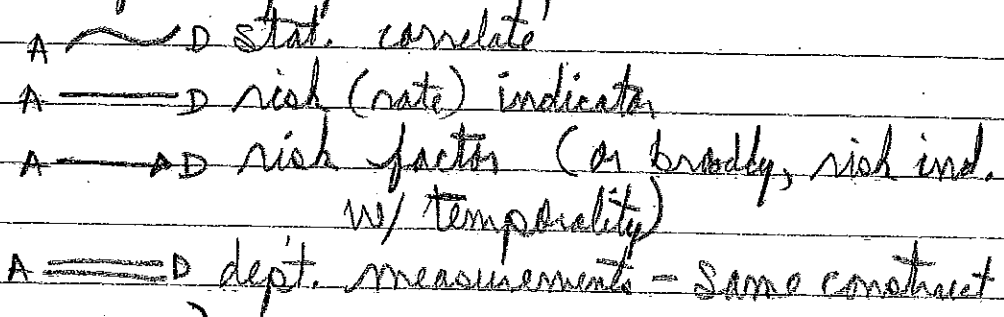 A ~ D stat. correlate
A — D risk (rate) indicator
A → D risk factor (or broadly, risk ind.
w/ temporality)
A ≡ D dept. measurements - same construct